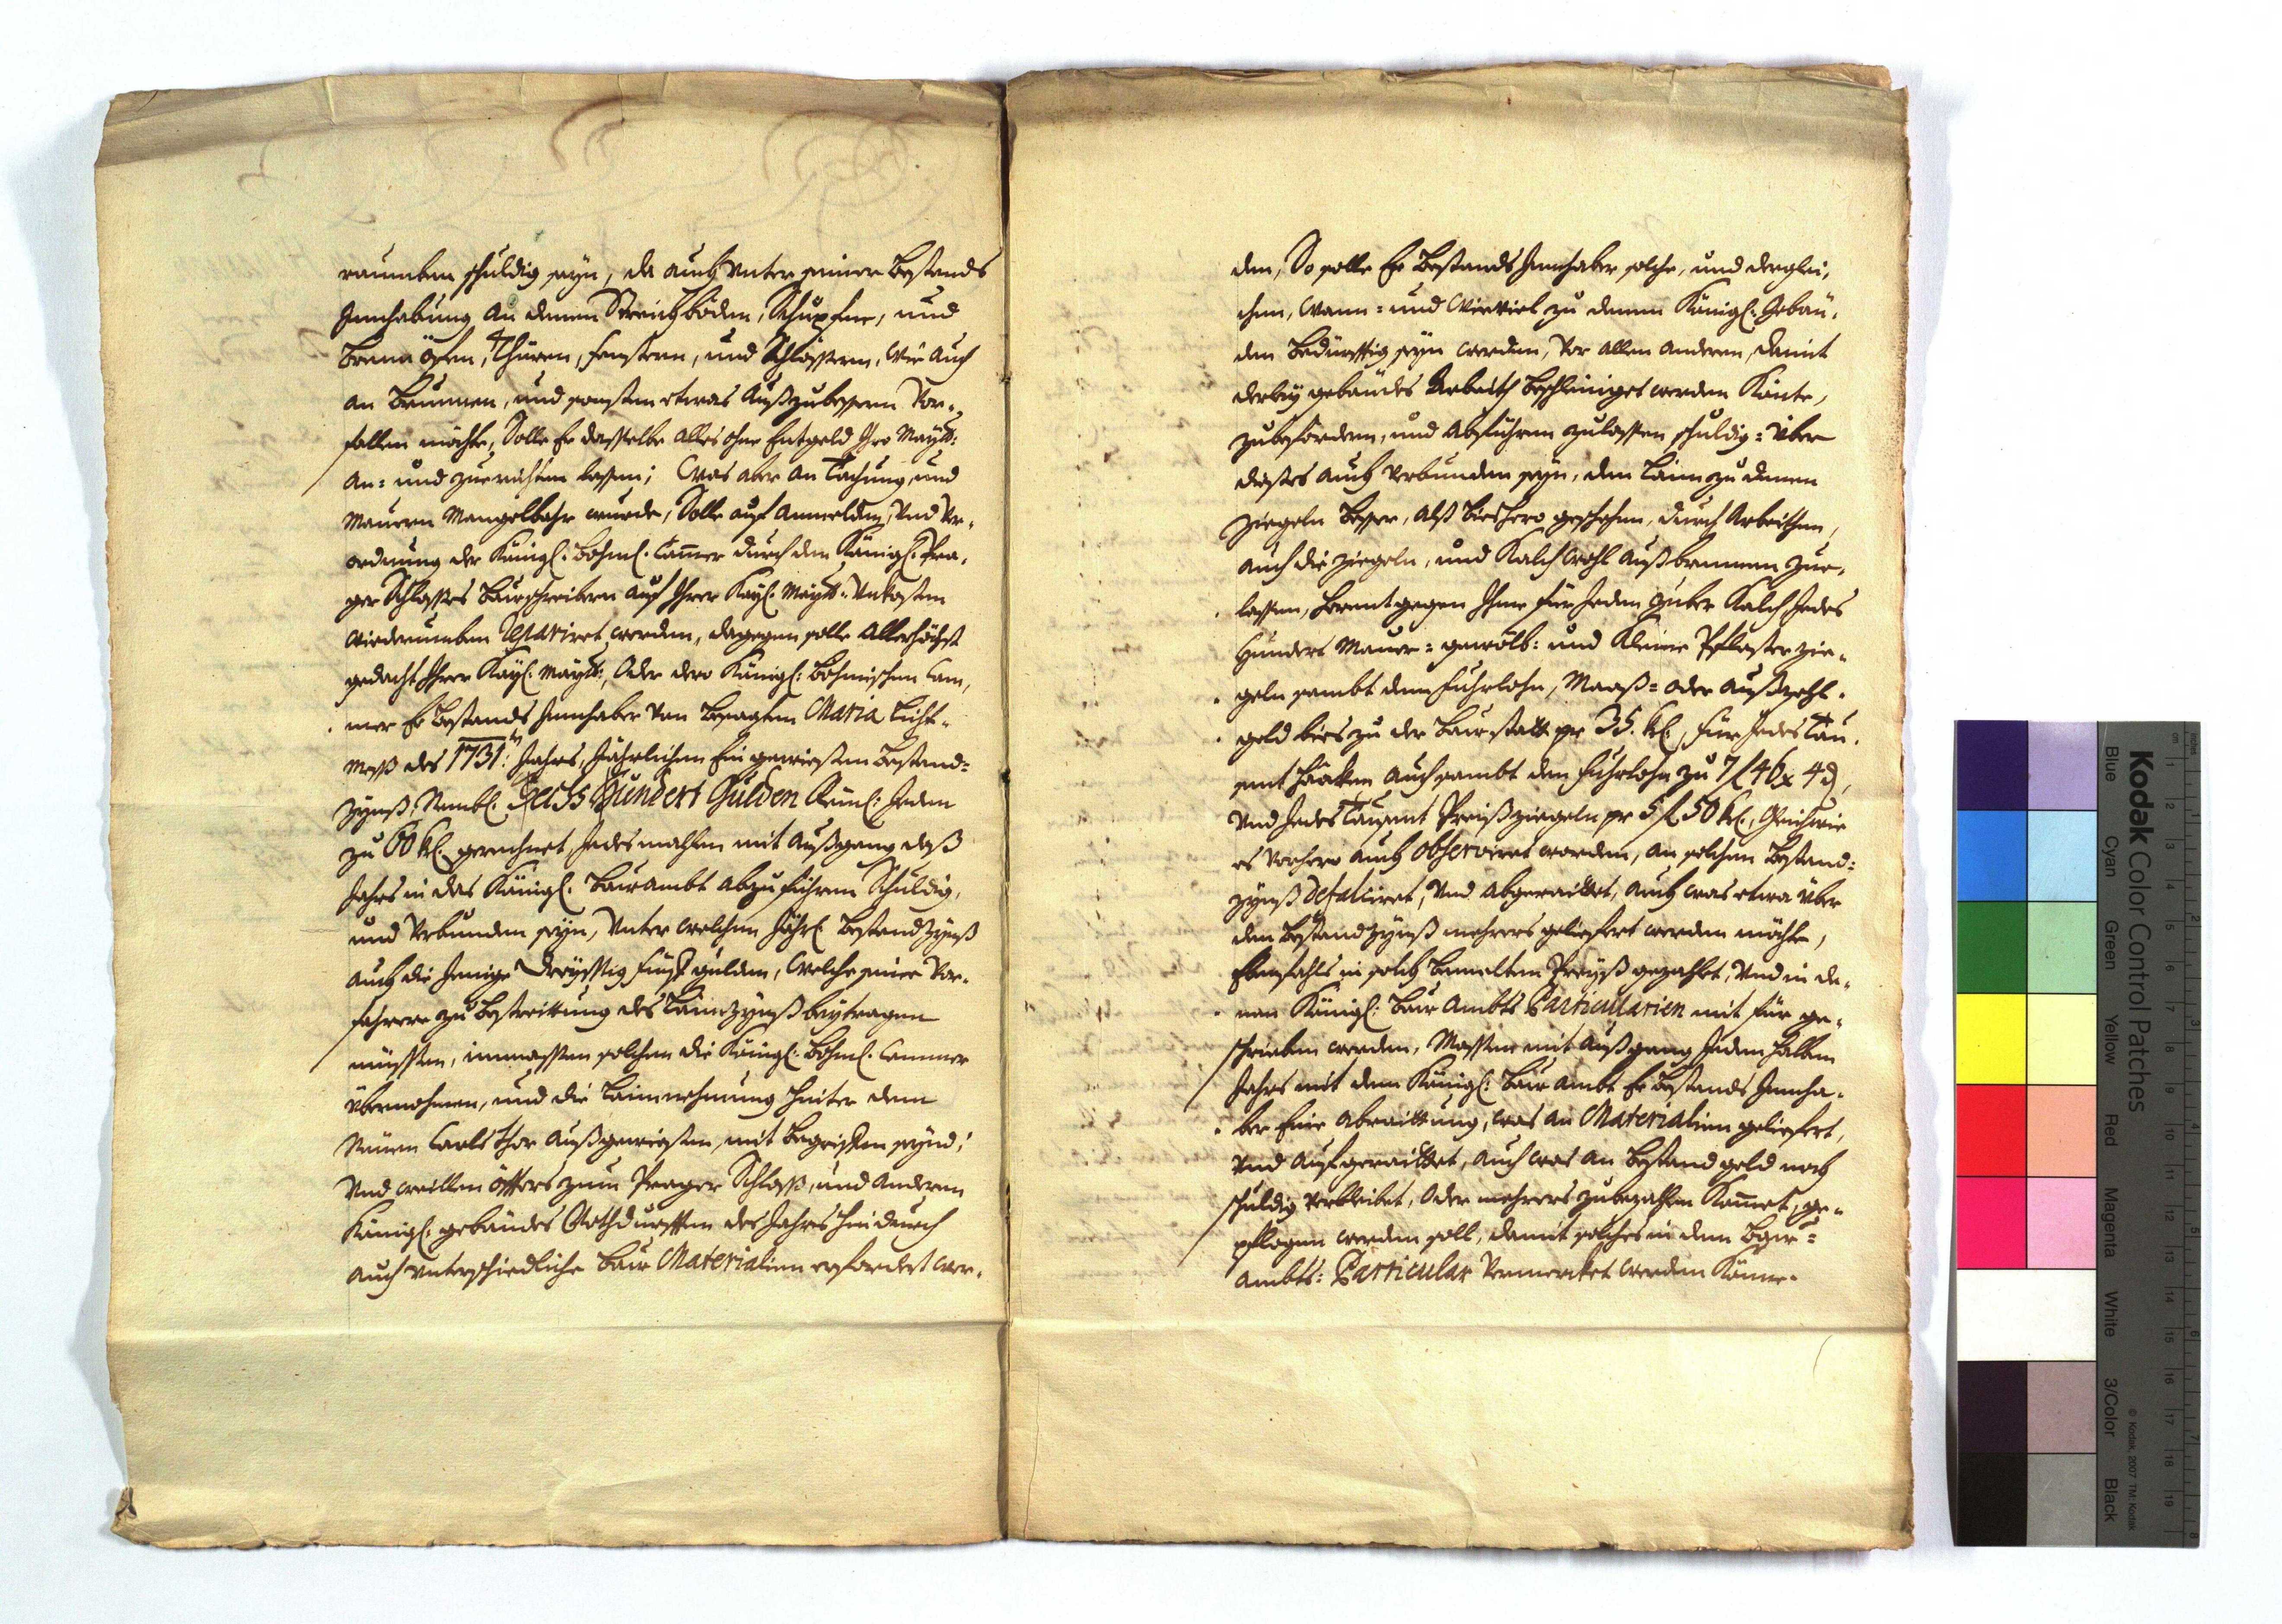 raumben schuldig seyn, da auch unter seiner Bestands
Innhabung an denen Streichböden, Schupfen, und
Brenn öfen, Thüren, fenstern, und Schlössern, wie auch
an Brunnen, und sonsten etwas Außzubessern Vor-
fallen möchte, Solle Er dasselbe alles ohne Entgeld Ihro Maytt:
an- und zuerichten lassen; Was aber an Tachung, und
Mauern Mangelbahr wurde, Solle auf Anmelden, Und Ver-
ordnung der Königl: Böhml: Cammer durch den Königl: Pra-
ger Schlosses Bauschreibern auf Ihrer Kayl: Maytt: Unkosten
wiederumben Restauriret werden, dagegen solle Allerhöchst
gedacht Ihrer Kayl: Maytt:, Oder dero Königl: Böhmischen Cam-
mer Er Bestands Innhaber Von besagten Maria Licht-
Mess des 1731ten: Jahrs, Jährlichen Ein gewiesten Bestand-
Zynß, Nembl: Sechs Hundert Gulden Reinl: Jeden
zu 60 kr: gerechnet, Jedesmahlen mit Außgang deß
Jahrs in das Königl: Bau ambt abzuführen Schuldig,
und Verbunden seyn, Unter welchen Jährl: Bestand Zynß
auch die Jenige Dreyssig fünf gulden, welche seine Vor-
fahrere zu Bestreittung des Laimzynß beytragen
müssten, immassen solchen die Königl: Böhml: Cammer
übernohmen, und die Laimnehmung hinter dem
Neuen Carls Thor Außgewiesten, mit Begriffen seynd;
Und weillen öffters zum Prager Schloß, und anderen
Königl: gebäudes Nothdurfften des Jahrs hindurch
auch unterschiedliche Bau Materialien erfordert wer-
den, So solle Er Bestands Innhaber solche, und derglei-
chen, Wann- und Wieviel zu denen Königl: Gebäu-
den Bedürfftig seyn werden, Vor allen anderen, damit
derley gebäudes Arbeith Beschleiniget werden Könte,
zubefördern, und Abführen zulassen schuldig- Über
dieses auch Verbunden seyn, den Laim zu denen
Ziegeln Besser, alß Bieshero geschehen, durch Arbeithen,
auch die Ziegeln, und Kalch wohl Außbrennen zue-
lassen, Herentgegen Ihme für Jeden Zuber Kalch, Jedes
Hundert Mauer- gewölb- und Kleine Pflaster zie-
geln sambt dem fuhrlohn, Maaß- oder Außzehl-
geld bies zu der Baustatt pr 35. kr:, für Jedes Tau-
sent Haaken auch sambt den fuhrlohn zu 7 f 46 x 4 d,
Und Jedes Tausent Preißziegeln pr 5 f 50 kr:, Gleichwie
es Vorhero auch observiret worden, an solchen Bestand-
zynß defalciret, Und Abgeraittet, auch was etwa über
den Bestandzynß mehrers geliefert werden möchte,
Ebenfahls in solch Bemelten Preyß gezahlt, Und in de-
nen Königl: Bau Ambts Particularien mit für ge-
schrieben werden, Massen mit Außgang Jeden halben
Jahrs mit dem Königl: Bau Ambt Er Bestands Innha-
ber Eine Abraittung, was an Materialien geliefert,
Und Aufgeraittet, auch was an Bestand geld noch
schuldig verbleibet, Oder mehrers zubezahlen Kommet, ge-
pflogen werden soll, damit solches in dem Bau-
Ambts: Particular Vermercket werden Könne.